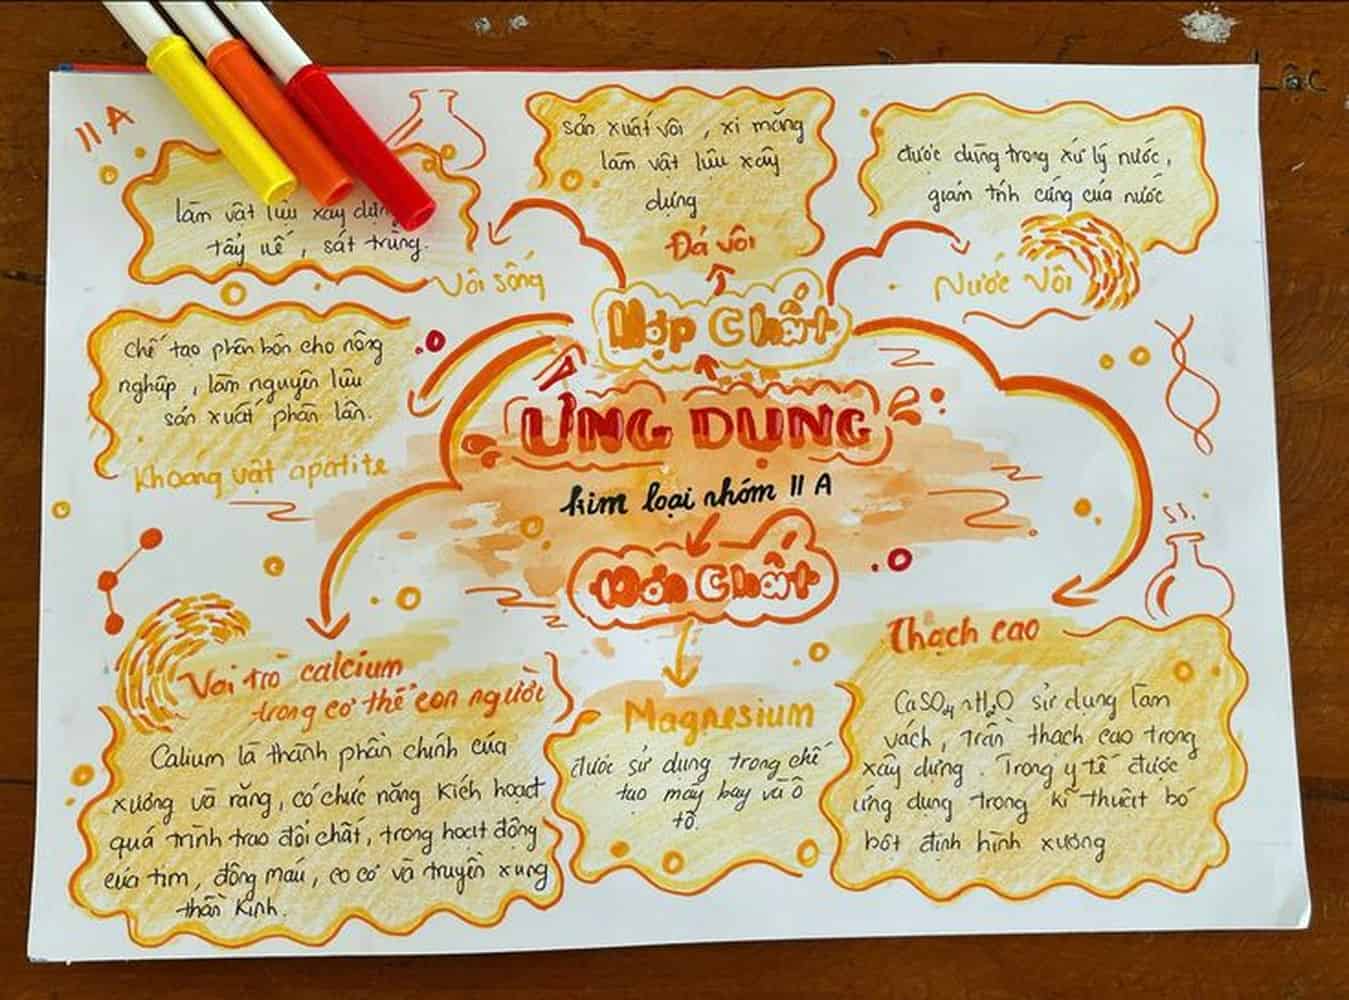 II A
làm vật liệu xây dựng
tẩy uế, sát trùng.
Vôi sống
sản xuất vôi, xi măng
làm vật liệu xây
dựng
Đá vôi
được dùng trong xử lý nước,
giảm tính cứng của nước
Nước Vôi
Hợp Chất
chế tạo phân bón cho nông
nghiệp, làm nguyên liệu
sản xuất phân lân.
Khoang vật apatite
ỨNG DỤNG
kim loại nhóm II A
Đơn Chất
Vai trò calcium
trong cơ thể con người
Calium là thành phần chính của
xương và răng, có chức năng kích hoạt
quá trình trao đổi chất, trong hoạt động
của tim, đông máu, co cơ và truyền xung
thần kinh.
Magnesium
được sử dụng trong chế
tạo máy bay và ô
tô.
Thạch cao
CaSO4 nH2O sử dụng làm
vách, trần thạch cao trong
xây dựng. Trong y tế được
ứng dụng trong kĩ thuật bó
bột định hình xương